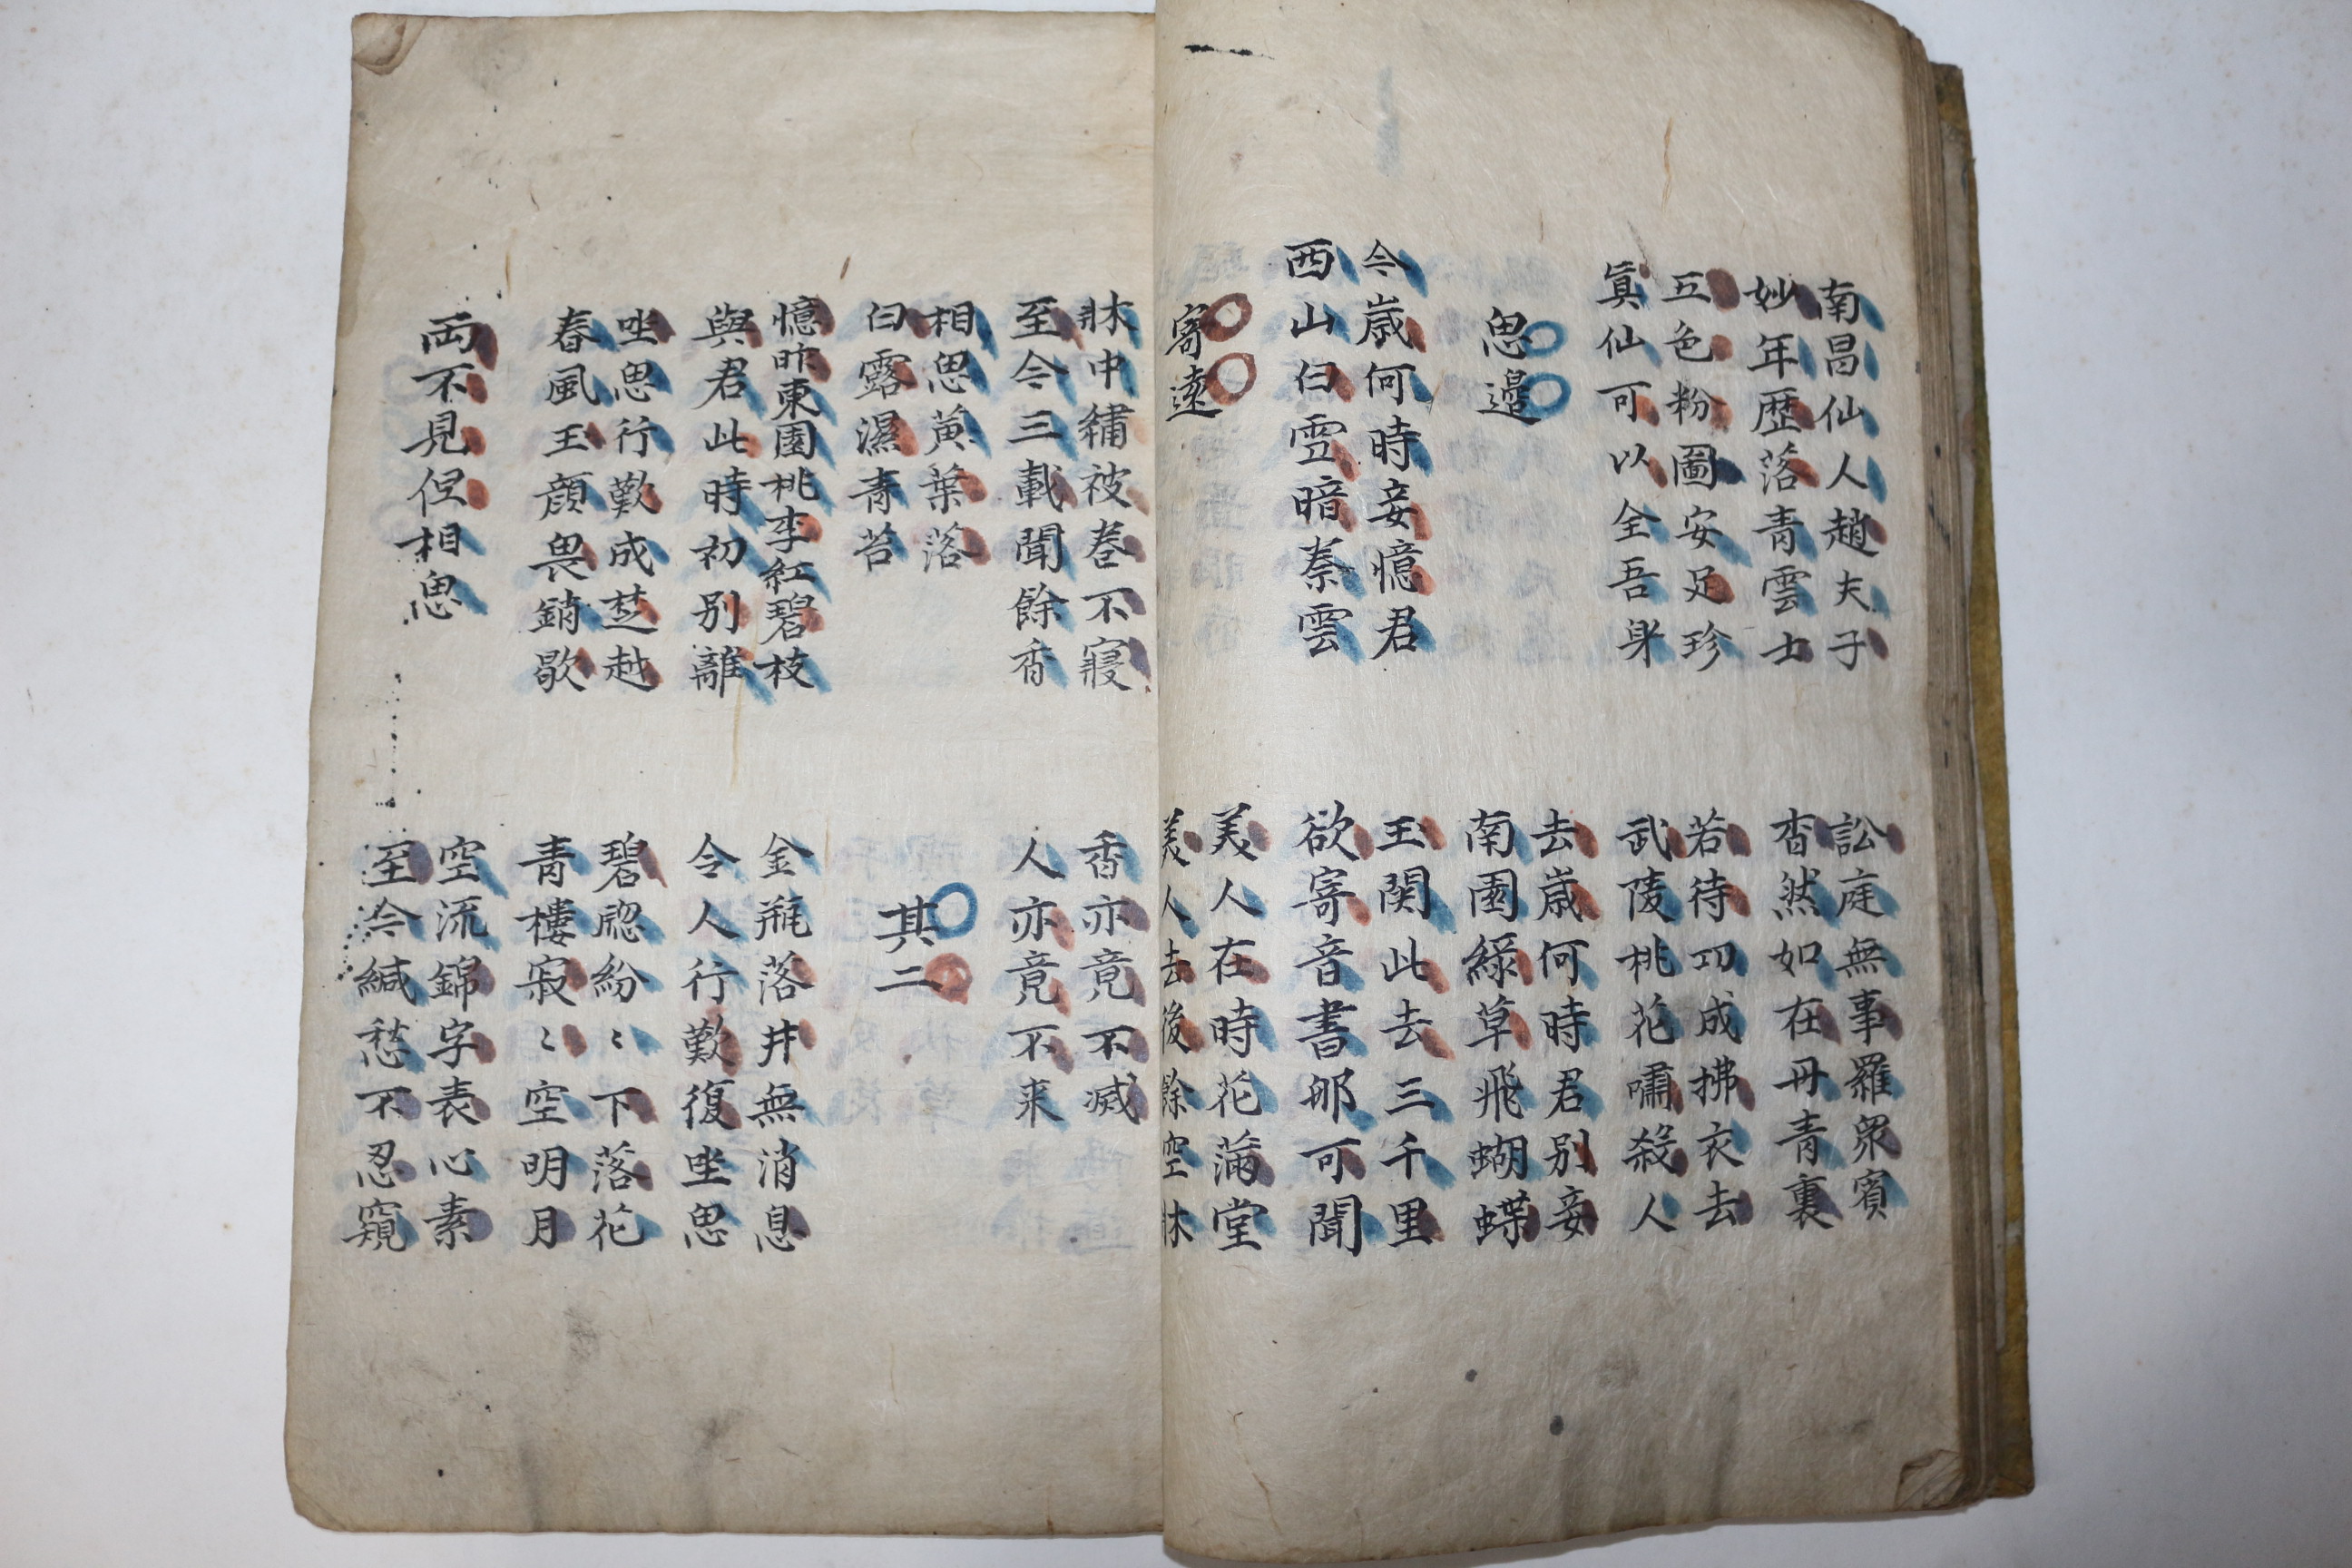 南昌仙人趙夫子
妙年歷落青雲士
訟庭無事羅衆賓
杳然如在丹青裏
五色粉圖安足珍
眞仙可以全吾身
若待功成拂衣去
武陵桃花嘯殺人
思邊
去歲何時君別妾
南園綠草飛蝴蝶
今歲何時妾憶君
西山白雪暗秦雲
玉関此去三千里
欲寄音書那可聞
寄遠
美人在時花滿堂
美人去後餘空牀
牀中繡被卷不寢
至今三載聞餘香
香亦竟不滅
人亦竟不来
相思黃葉落
白露濕青苔
其二
憶昨東園桃李紅碧枝
與君此時初別離
金瓶落井無消息
令人行歎復坐思
坐思行歎成楚越
春風玉顔畏銷歇
碧窓紛〻下落花
青樓寂〻空明月
両不見但相思
空流錦字表心素
至今緘愁不忍窺